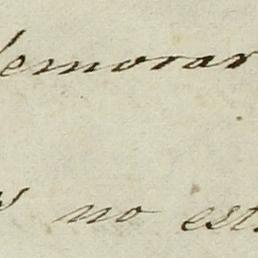 demorar
no est